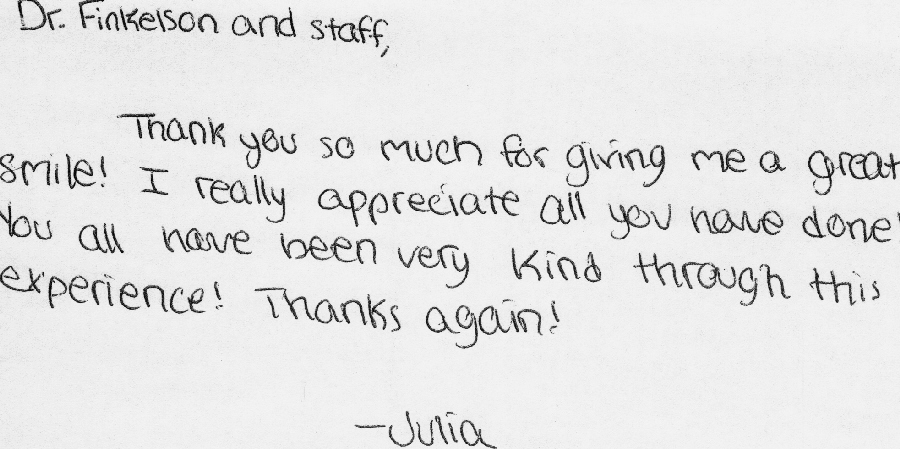 Dr. Finkelson and staff,
Thank you so much for giving me a great
smile! I really appreciate all you have done!
You all have been very kind through this
experience! Thanks again!
-Julia